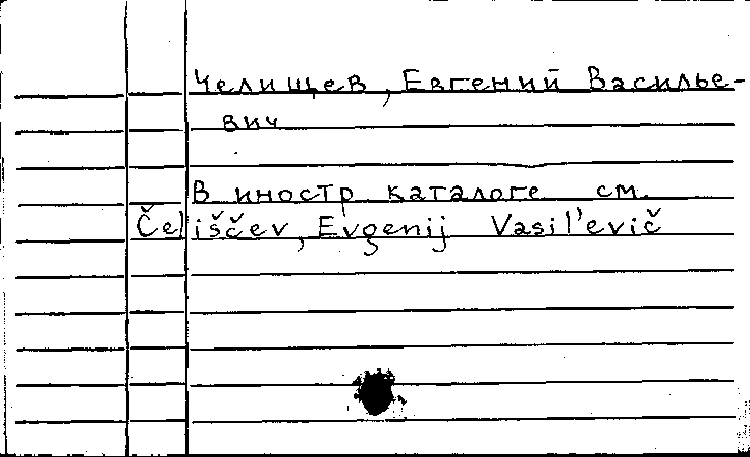 Челищев, Евгений Василье-
вич
В иностр каталоге см.
Čeliščev, Evgenij Vasil'evič